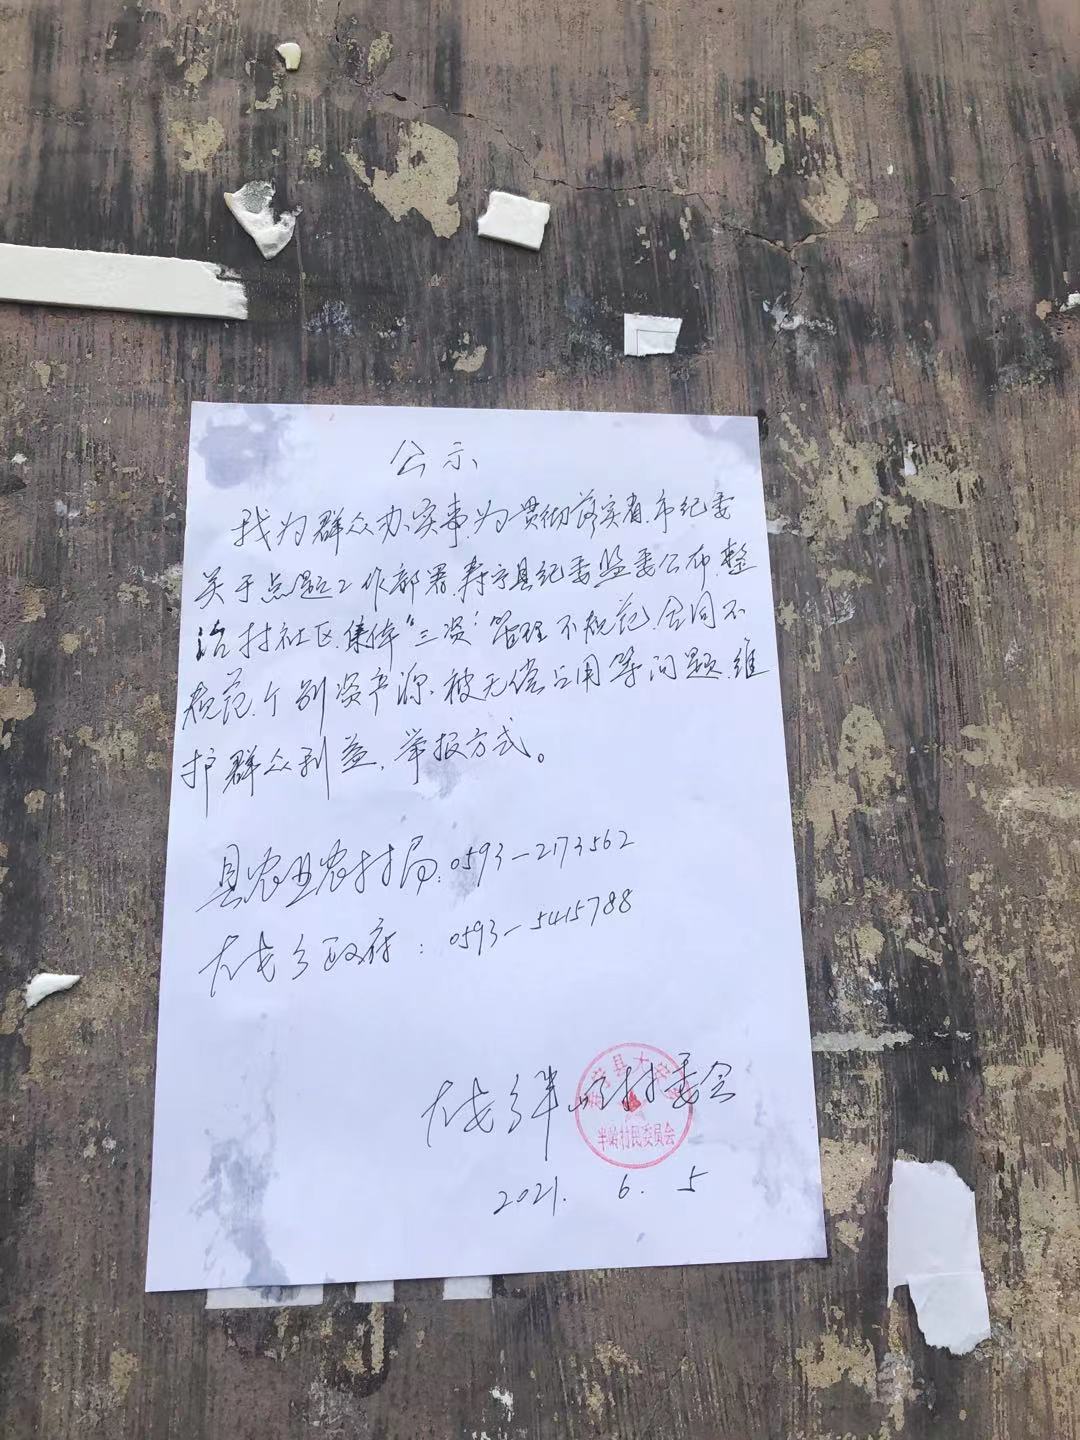 公示
我为群众办实事.为贯彻落实省.市纪委
关于点题工作部署.寿宁县纪委监委公布.整
治村社区.集体“三资”管理不规范.合同不
规范.个别资产源.被无偿占用等问题.维
护群众利益.举报方式。
县农业农村局:0593-2173562
大安乡政府:0593-5415788
大安乡半岭村委会
寿宁县大安乡
半岭村民委员会
2021. 6. 5